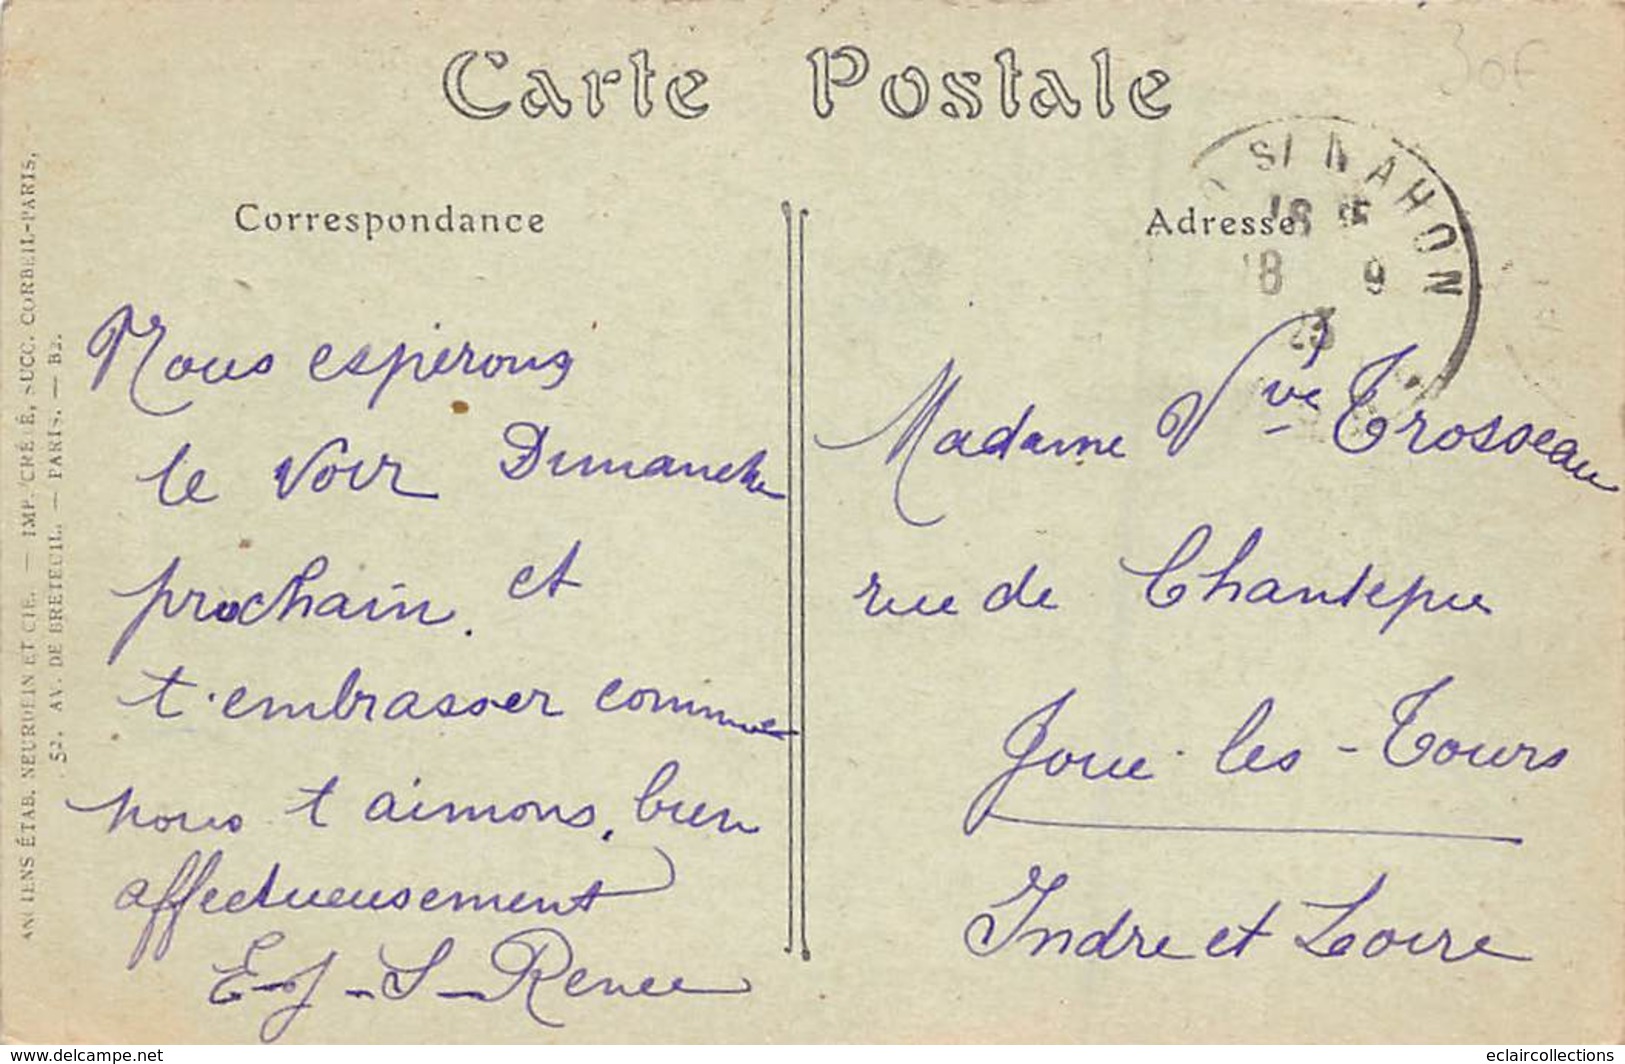 Carte Postale
30F
Correspondance
Nous espérons
te voir Dimanche
prochain. et
t'embrasser comme
nous t'aimons. bien
affectueusement
E-J-S-Renée
ANCIENS ÉTAB. NEURDEIN ET CIE. — IMP. CRÉTÉ, SUCC. CORBEIL-PARIS.
52. AV. DE BRETEUIL. — PARIS. — B2.
Adresse
MAHON
18
8 9
23
Madame Vve Trosseau
rue de Chantepie
Joué-les-Tours
Indre et Loire
www.delcampe.net
eclaircollections